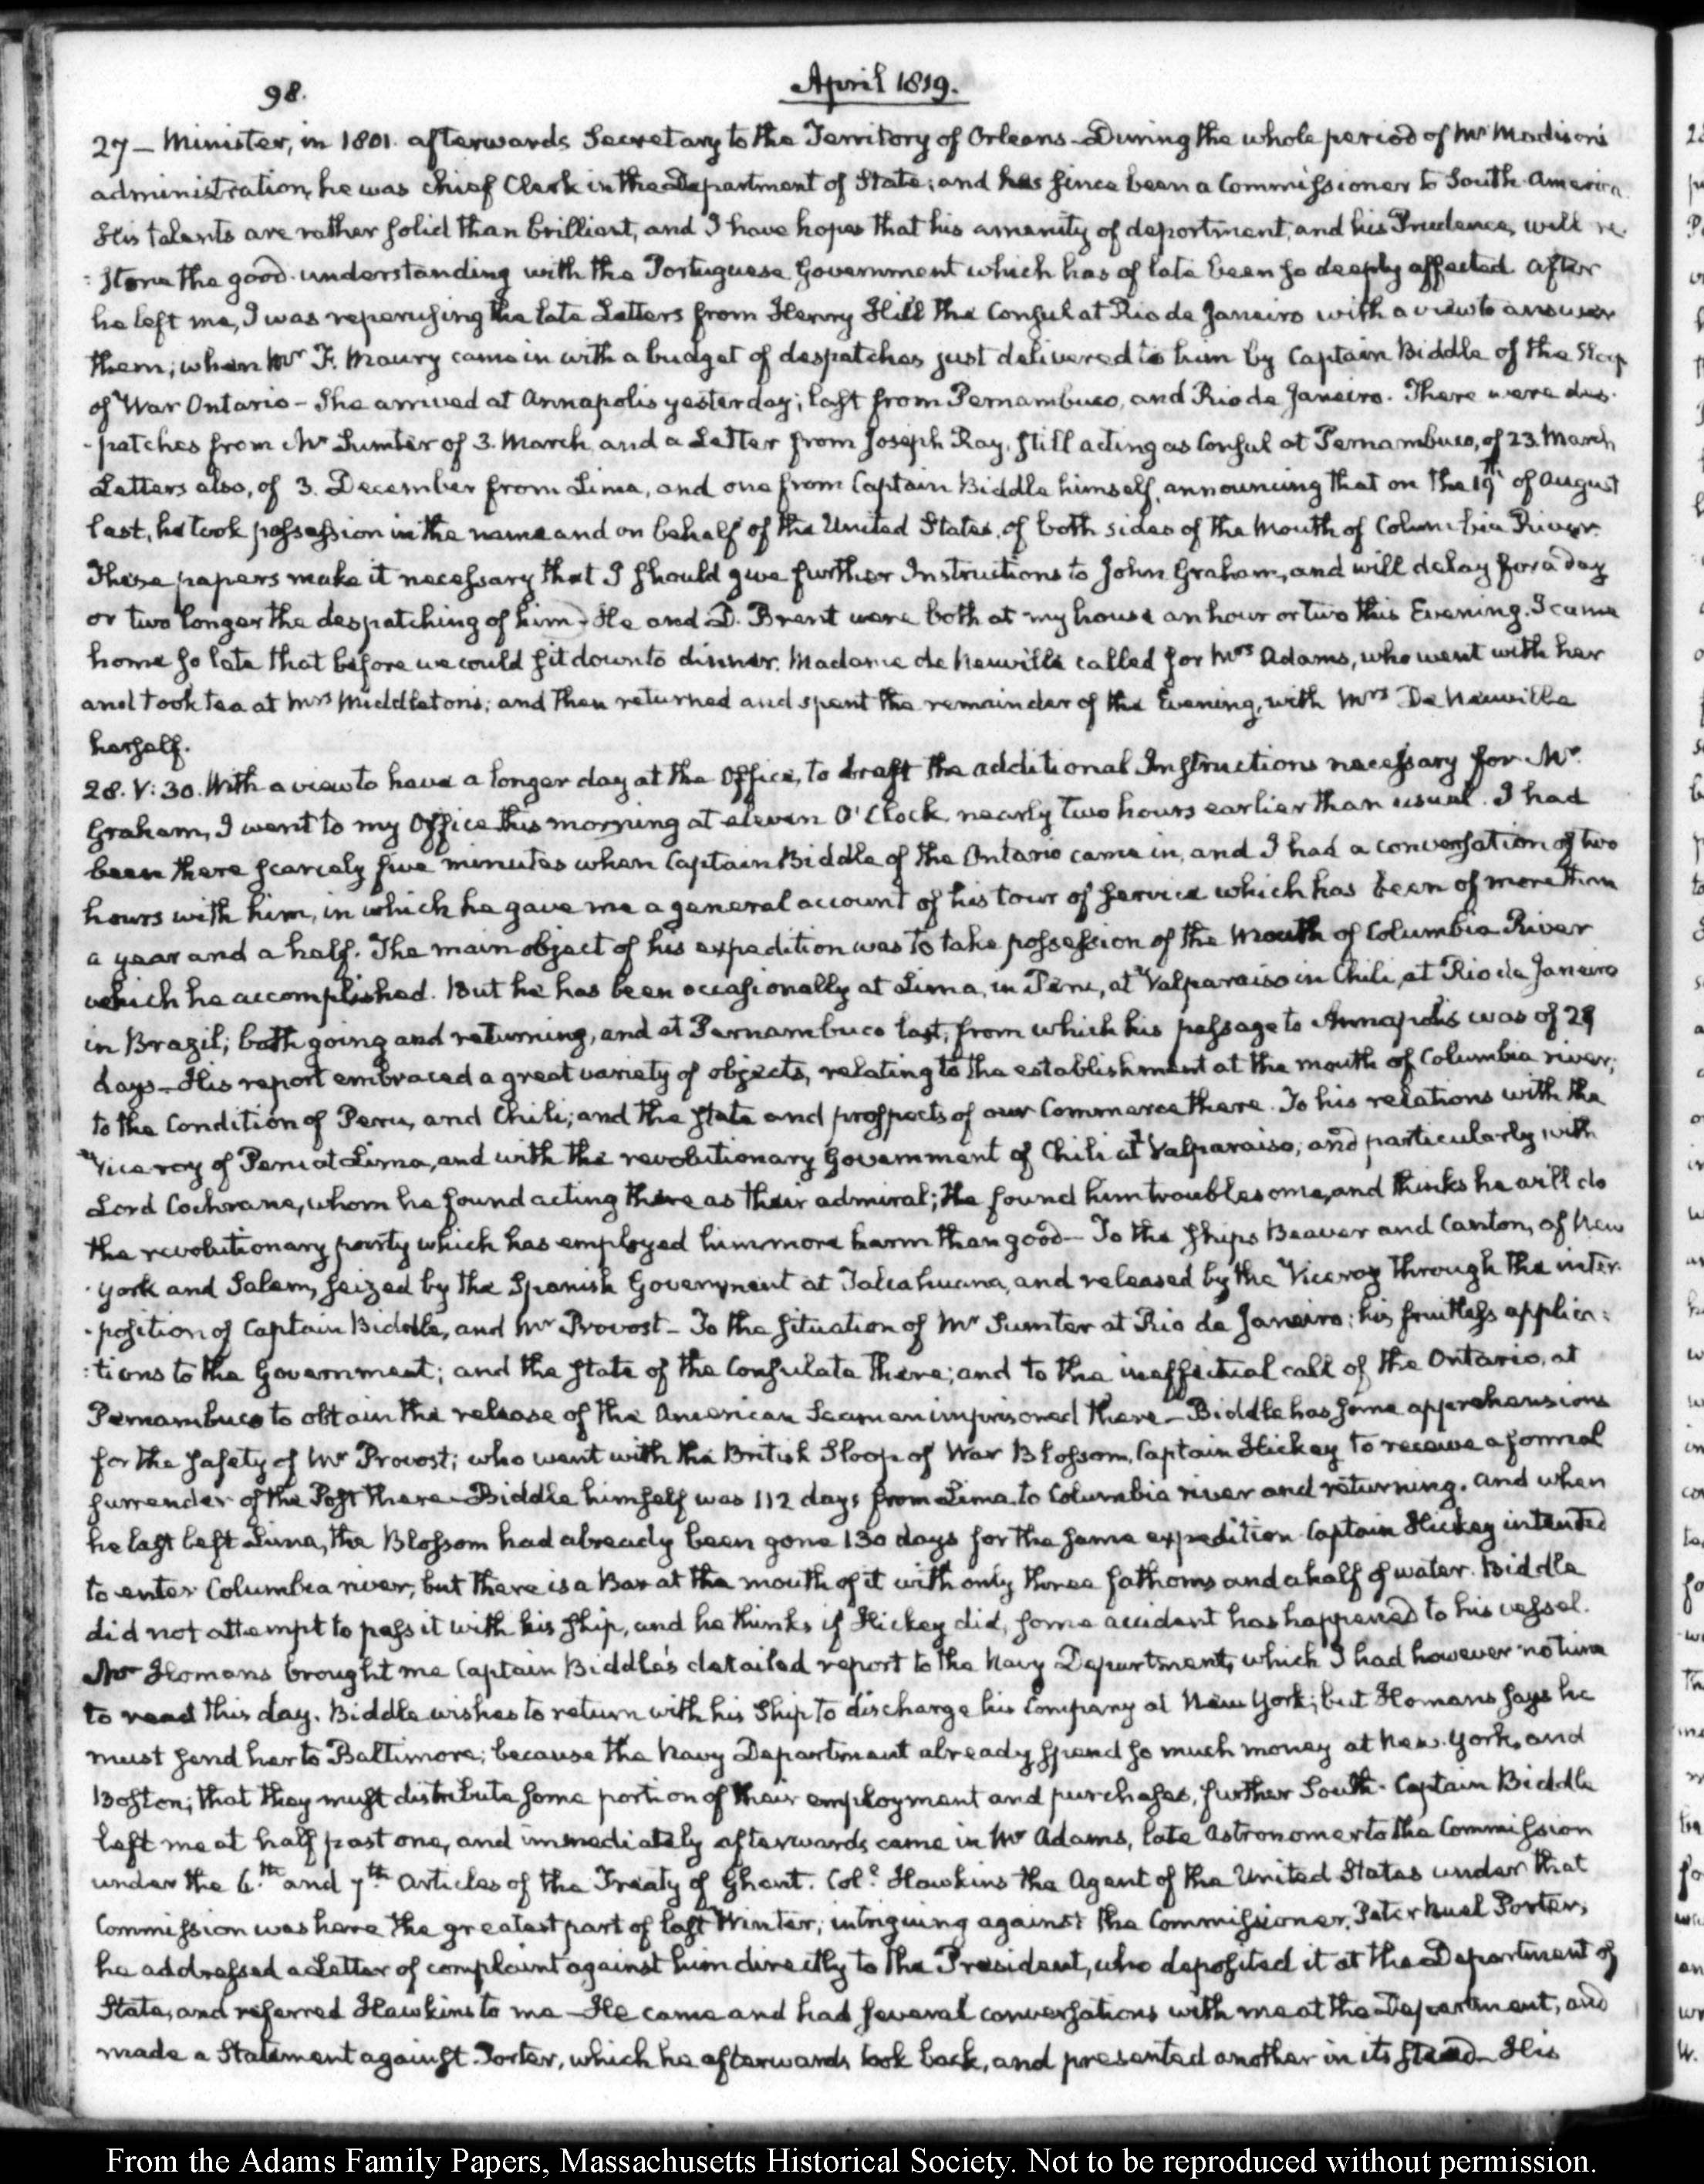 98. April 1819.
27 – Minister, in 1801. afterwards Secretary to the Territory of Orleans – During the whole period of Mr Madison's
administration, he was chief Clerk in the Department of State; and has since been a Commissioner to South America
His talents are rather solid than brilliant, and I have hopes that his amenity of deportment, and his Prudence, will re-
:store the good understanding with the Portuguese Government which has of late been so deeply affected. After
he left me, I was reperusing the late Letters from Henry Hill the Consul at Rio de Janeiro with a view to answer
them; when Mr F. Maury came in with a budget of despatches just delivered to him by Captain Biddle of the Sloop
of War Ontario – She arrived at Annapolis yesterday; last from Pernambuco, and Rio de Janeiro. There were des-
-patches from Mr Sumter of 3. March and a Letter from Joseph Ray, still acting as Consul at Pernambuco, of 23. March
Letters also, of 3. December from Lima, and one from Captain Biddle himself, announcing that on the 19th of August
last, he took possession in the name and on behalf of the United States, of both sides of the Mouth of Columbia River.
These papers make it necessary that I should give further Instructions to John Graham, and will delay for a day
or two longer the despatching of him – He and D. Brent were both at my house an hour or two this Evening. I came
home so late that before we could sit down to dinner, Madame de Neuville called for Mrs Adams, who went with her
and took tea at Mrs Middleton's; and then returned and spent the remainder of the Evening, with Mrs De Neuville
herself.
28. V:30. With a view to have a longer day at the Office, to draft the additional Instructions necessary for Mr
Graham, I went to my Office this morning at eleven O'Clock, nearly two hours earlier than usual. I had
been there scarcely five minutes when Captain Biddle of the Ontario came in, and I had a conversation of two
hours with him, in which he gave me a general account of his tour of service which has been of more than
a year and a half. The main object of his expedition was to take possession of the mouth of Columbia River
which he accomplished. But he has been occasionally at Lima, in Peru, at Valparaiso in Chili, at Rio de Janeiro
in Brazil; both going and returning, and at Pernambuco last, from which his passage to Annapolis was of 29
days – His report embraced a great variety of objects, relating to the establishment at the mouth of Columbia river;
to the Condition of Peru, and Chili; and the state and prospects of our Commerce there. To his relations with the
Viceroy of Peru at Lima, and with the revolutionary Government of Chili at Valparaiso; and particularly with
Lord Cochrane, whom he found acting there as their admiral; He found him troublesome, and thinks he will do
the revolutionary party which has employed him more harm than good – To the ships Beaver and Canton, of New
-York and Salem, seized by the Spanish Government at Talcahuana, and released by the Viceroy through the inter-
-position of Captain Biddle, and Mr Provost – To the situation of Mr Sumter at Rio de Janeiro; his fruitless applica:
:tions to the Government; and the state of the Consulate there; and to the ineffectual call of the Ontario, at
Pernambuco to obtain the release of the American Seamen imprisoned there – Biddle has some apprehensions
for the safety of Mr Provost; who went with the British Sloop of War Blossom, Captain Hickey to receive a formal
surrender of the Post there – Biddle himself was 112 days from Lima to Columbia river and returning. And when
he last left Lima, the Blossom had already been gone 130 days for the same expedition. Captain Hickey intended
to enter Columbia river, but there is a Bar at the mouth of it with only three fathoms and a half of water. Biddle
did not attempt to pass it with his ship, and he thinks if Hickey did, some accident has happened to his vessel.
Mr Homans brought me Captain Biddle's detailed report to the Navy Department, which I had however no time
to read this day. Biddle wishes to return with his Ship to discharge his Company at New York; but Homans says he
must send her to Baltimore; because the Navy Department already spend so much money at New-York, and
Boston; that they must distribute some portion of their employment and purchases, further South. Captain Biddle
left me at half past one, and immediately afterwards came in Mr Adams, late Astronomer to the Commission
under the 6.th and 7th Articles of the Treaty of Ghent. Col.l Hawkins the Agent of the United States under that
Commission was here the greatest part of last Winter, intriguing against the Commissioner, Peter Buel Porter,
he addressed a Letter of complaint against him directly to the President, who deposited it at the Department of
State, and referred Hawkins to me – He came and had several conversations with me at the Department, and
made a Statement against Porter, which he afterwards took back, and presented another in its stead – His
From the Adams Family Papers, Massachusetts Historical Society. Not to be reproduced without permission.